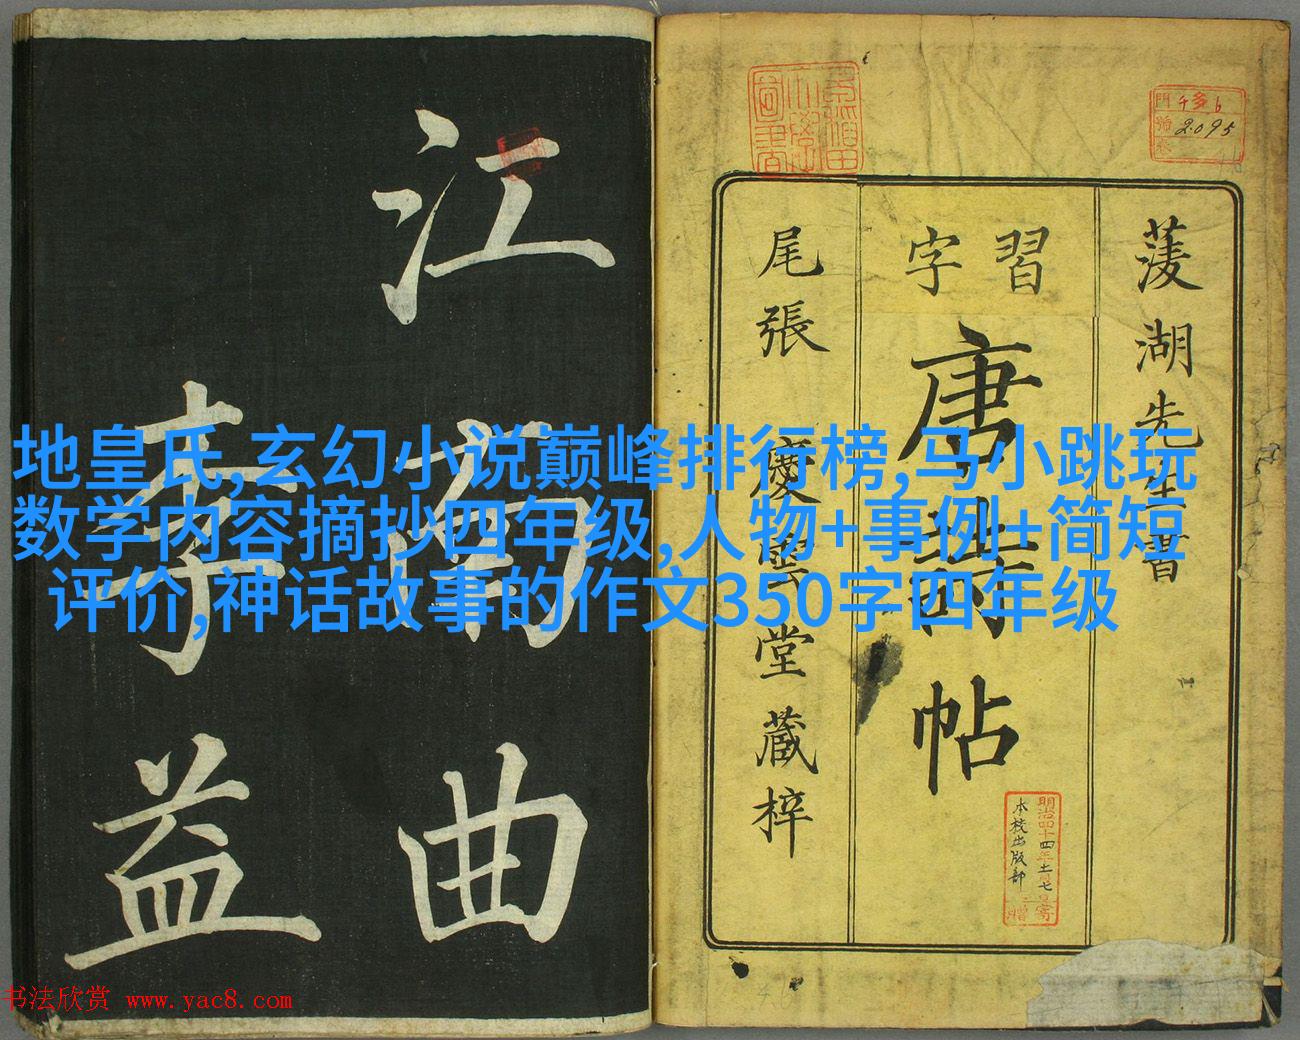 地皇氏,玄幻小说巅峰排行榜,马小跳玩
数学内容摘抄四年级,人物+事例+简短
评价,神话故事的作文350字四年级
江南曲
李益
門 千多 6
號 2095
卷
菱湖先生書
習字
唐詩帖
尾張 慶雲堂藏梓
明治四十四年十一月七日寄贈
本校出版部
书法欣赏 www.yac8.com